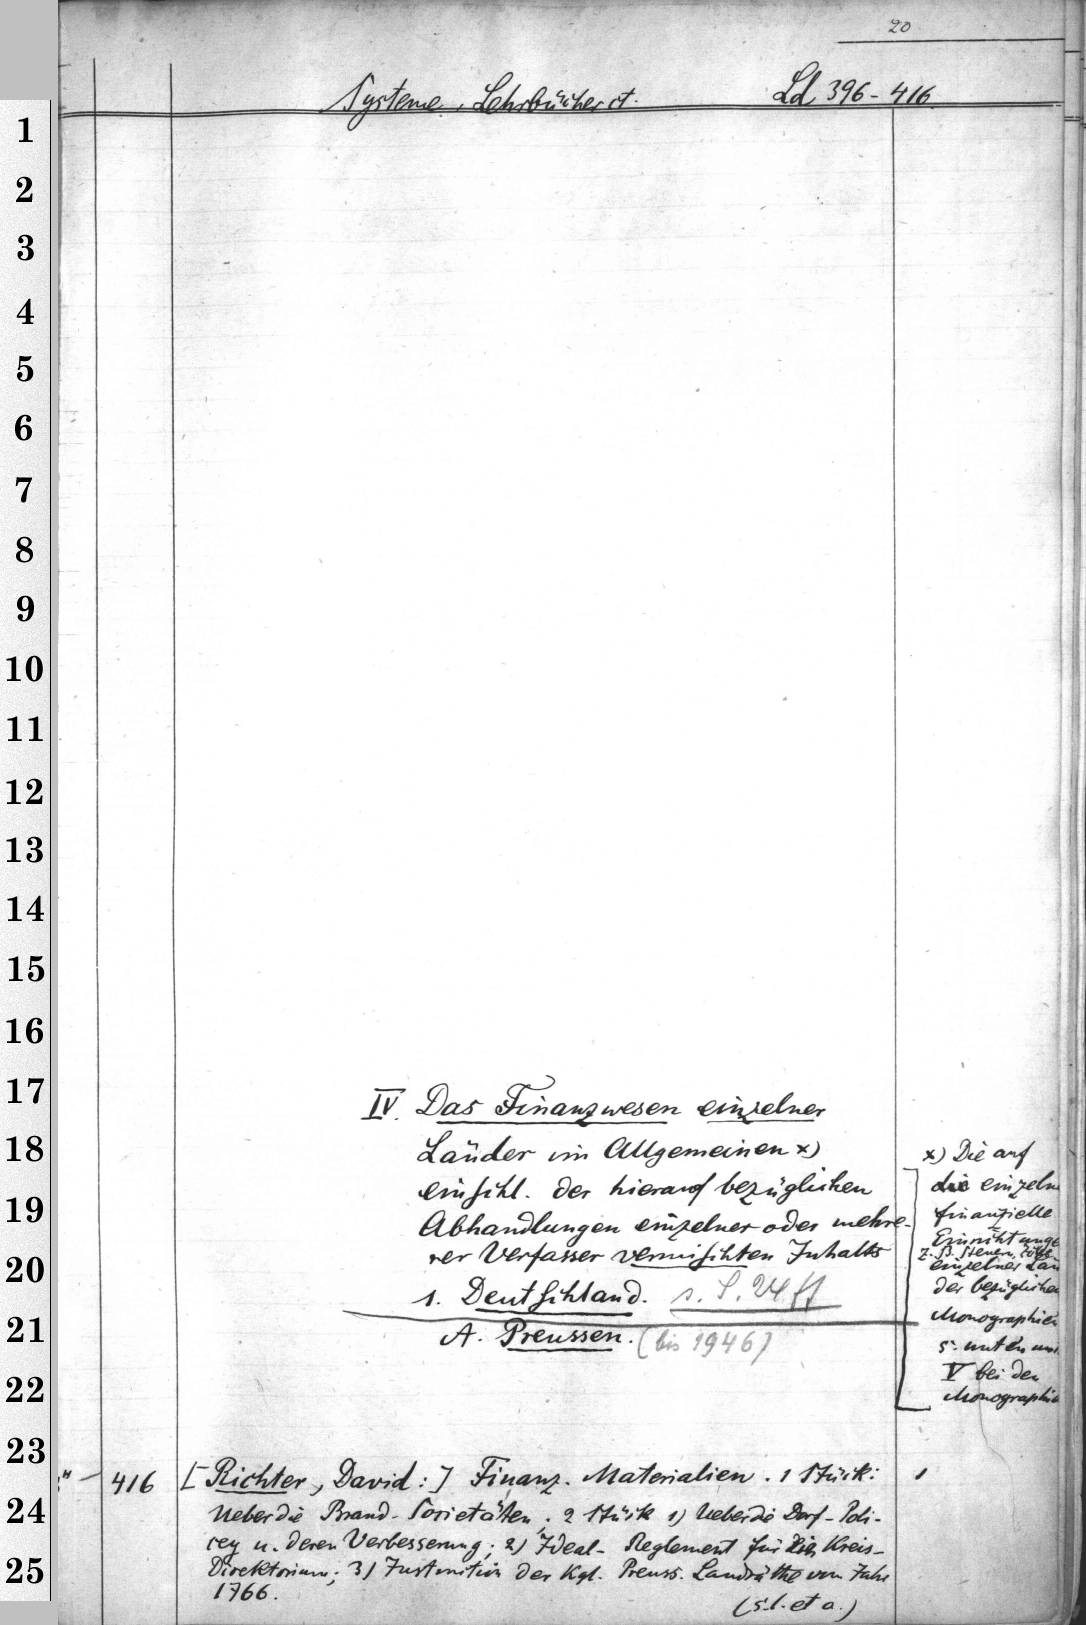 20
Systeme, Lehrbücher ct. Ld 396-416
1
2
3
4
5
6
7
8
9
10
11
12
13
14
15
16
17
18
19
20
21
22
23
24
25
IV. Das Finanzwesen einzelner
Länder im Allgemeinen x)
einschl. der hierauf bezüglichen
Abhandlungen einzelner oder mehre-
rer Verfasser vermischten Inhalts
1. Deutschland. s. S. 24 ff
A. Preussen. (bis 1946)
x) Die auf
die einzeln
finanzielle
Einrichtunge
z. B. Steuern, Zölle
einzelner Län
der bezügliche
Monographien
s. unten
V bei den
Monographi
416 [Richter, David:] Finanz-Materialien. 1 Stück: 1
Ueber die Brand-Societäten; 2 Stück 1) Ueber die Dorf-Poli-
cey u. deren Verbesserung; 2) Ideal-Reglement für die Kreis-
Direktorium; 3) Instruction der Kgl. Preuss. Landräthe vom Jahr
1766.
(s. l. et a.)